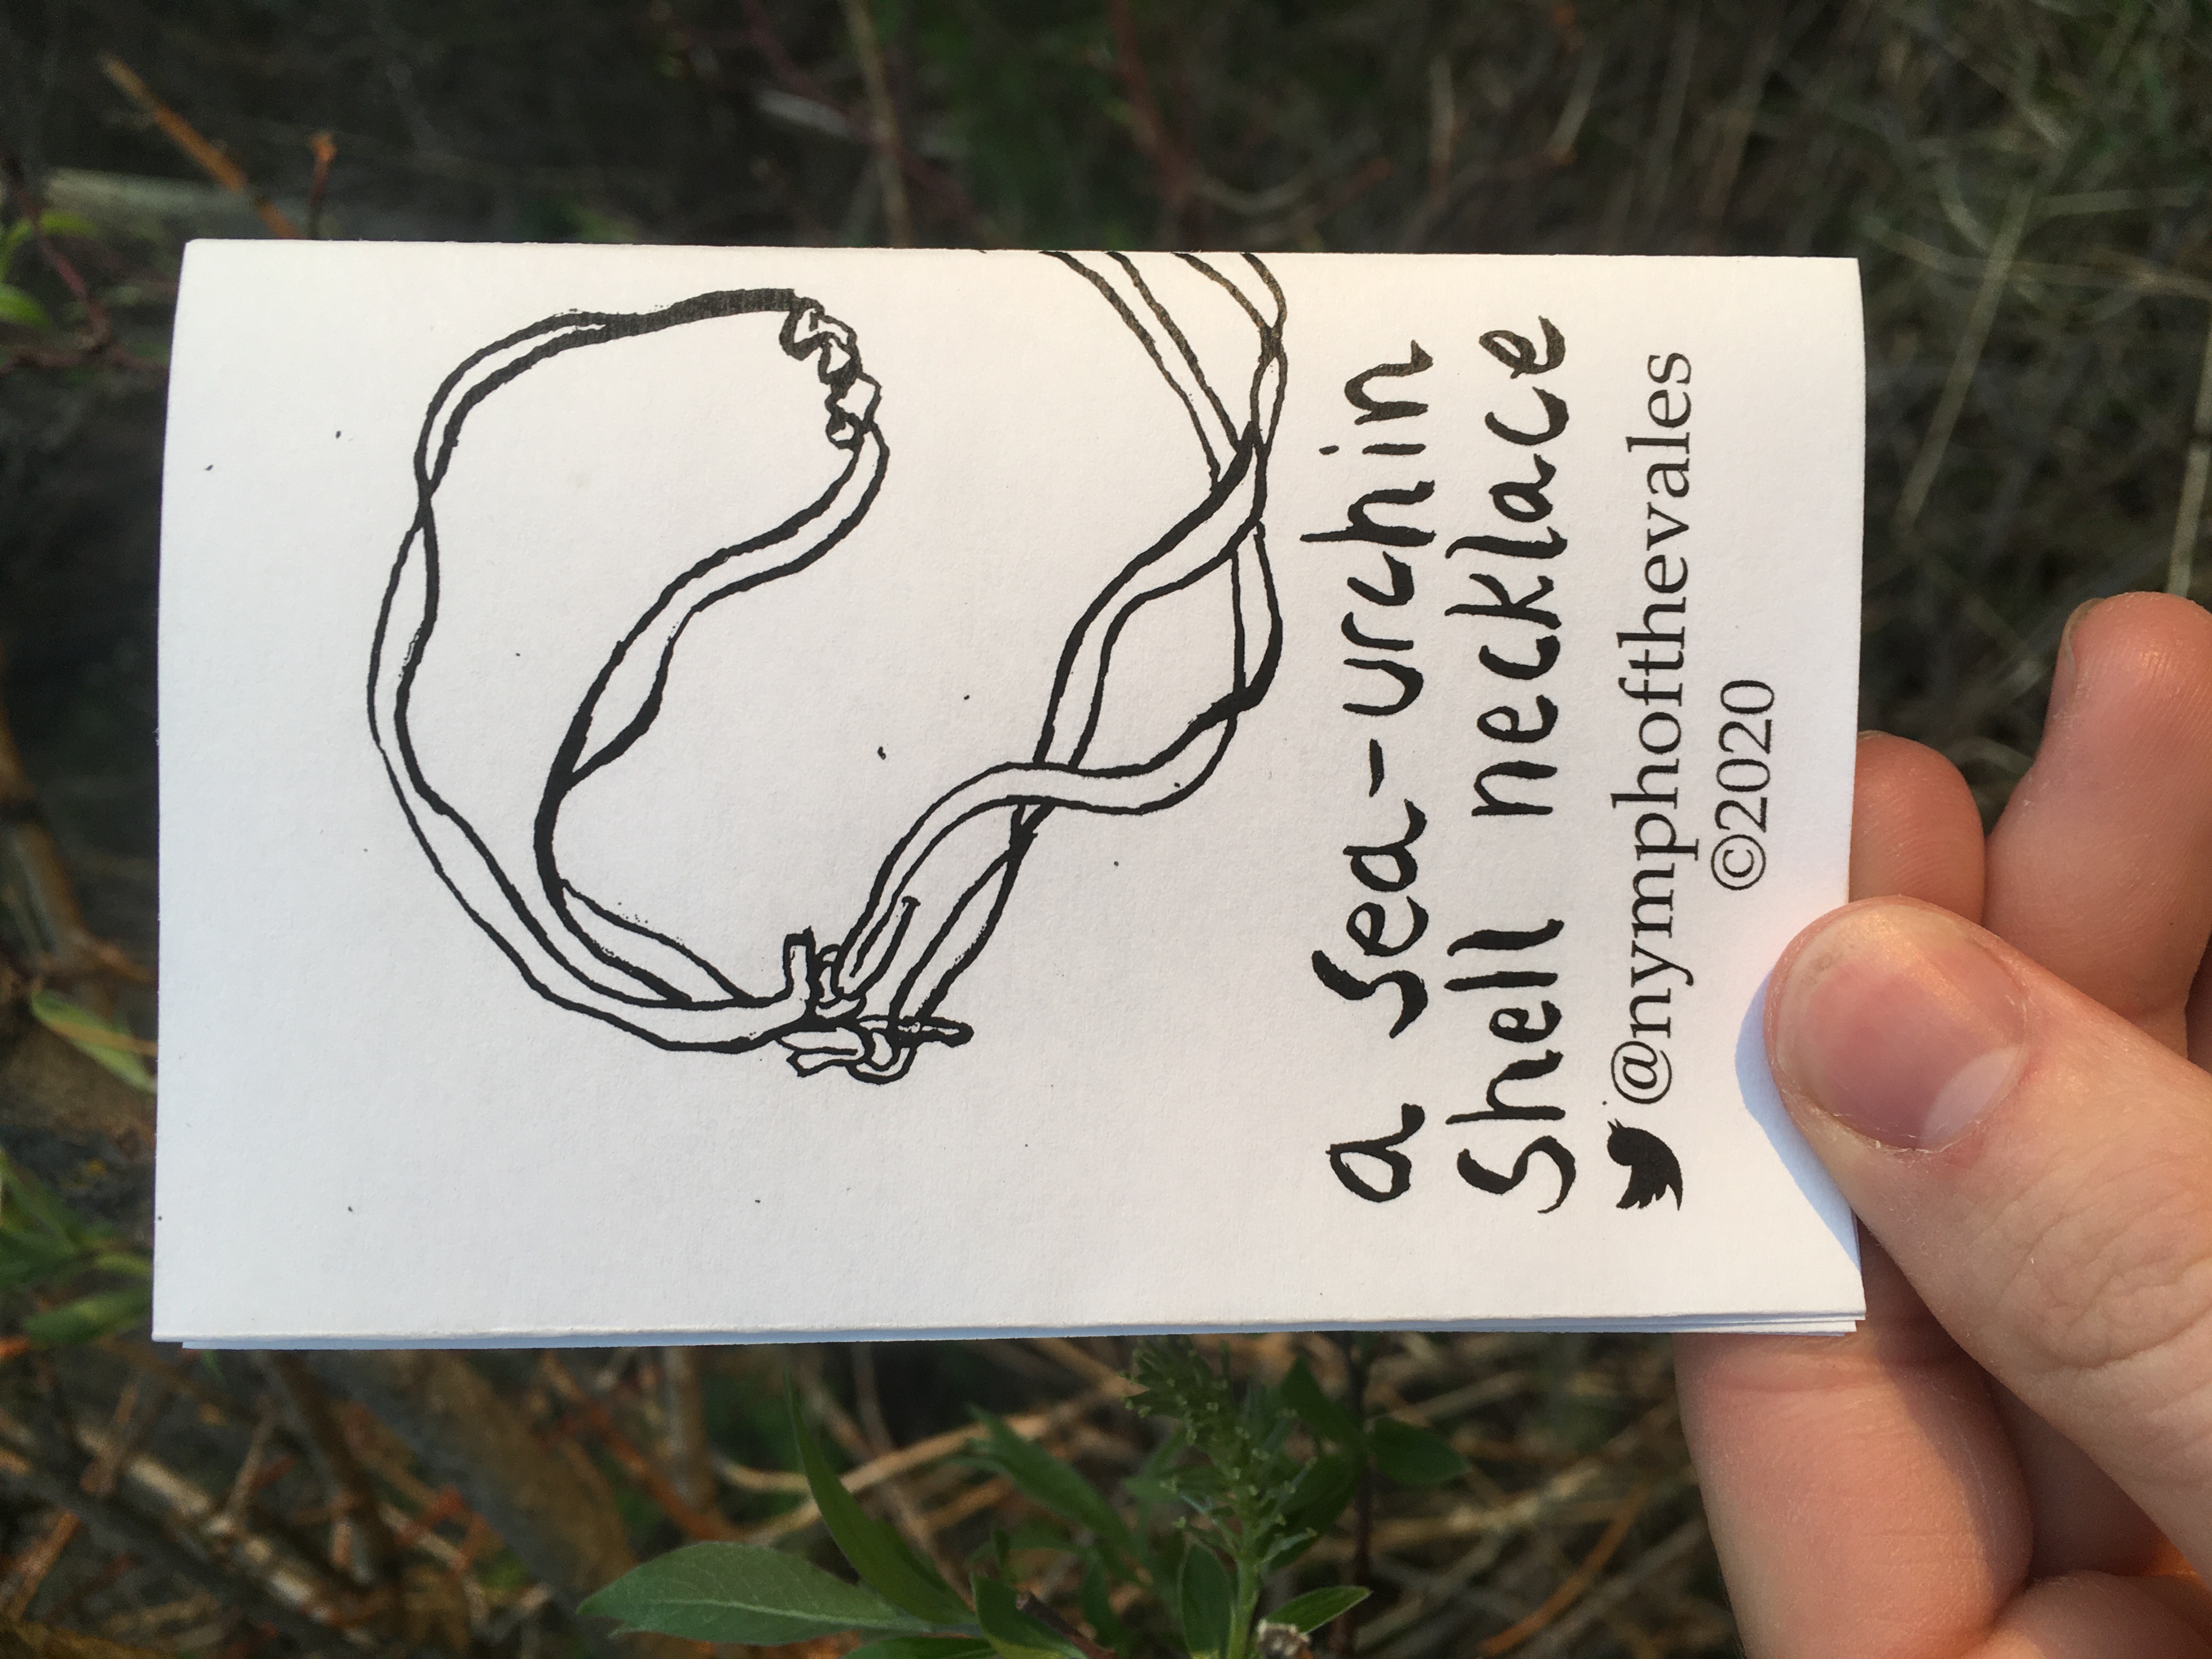 a sea-urchin
shell necklace
@nymphofthevales
©2020